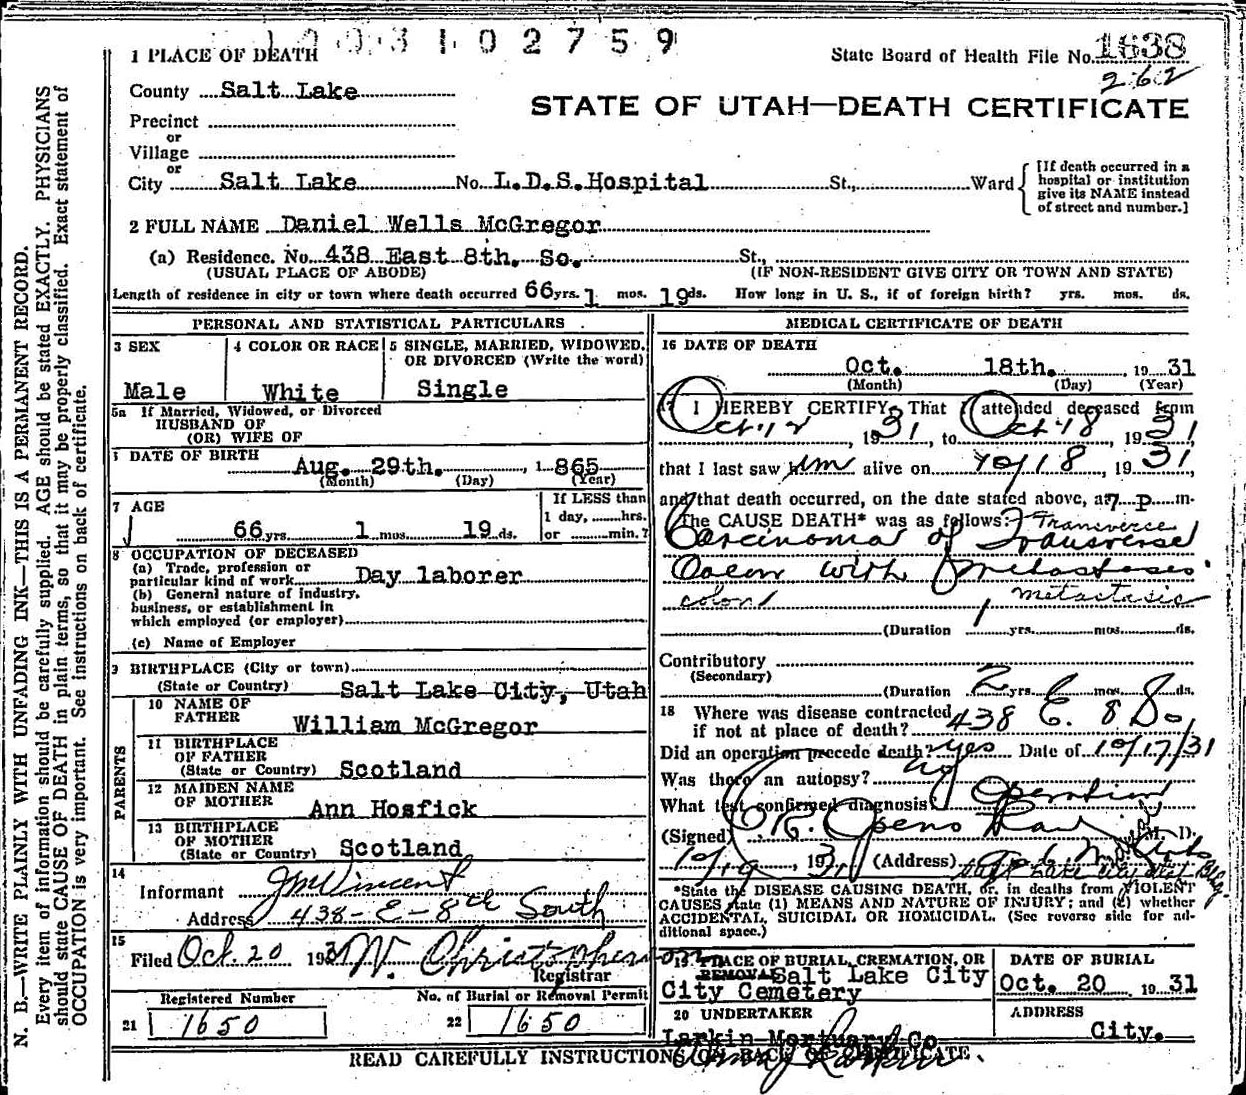 1003102759
1 PLACE OF DEATH
State Board of Health File No. 1638
262
County Salt Lake
STATE OF UTAH—DEATH CERTIFICATE
Precinct
or
Village
or
City Salt Lake No. L.D.S. Hospital St., Ward
[If death occurred in a
hospital or institution
give its NAME instead
of street and number.]
2 FULL NAME Daniel Wells McGregor
(a) Residence. No. 438 East 8th. So. St.,
(USUAL PLACE OF ABODE) (IF NON-RESIDENT GIVE CITY OR TOWN AND STATE)
Length of residence in city or town where death occurred 66 yrs. 1 mos. 19 ds. How long in U. S., if of foreign birth? yrs. mos. ds.
PERSONAL AND STATISTICAL PARTICULARS
3 SEX
Male
4 COLOR OR RACE
White
5 SINGLE, MARRIED, WIDOWED,
OR DIVORCED (Write the word)
Single
5a If Married, Widowed, or Divorced
HUSBAND OF
(OR) WIFE OF
DATE OF BIRTH
Aug. 29th. , 1865
(Month) (Day) (Year)
7 AGE
66 yrs. 1 mos. 19 ds.
If LESS than
1 day, hrs.
or min.?
8 OCCUPATION OF DECEASED
(a) Trade, profession or
particular kind of work Day laborer
(b) General nature of industry,
business, or establishment in
which employed (or employer)
(c) Name of Employer
9 BIRTHPLACE (City or town)
(State or Country) Salt Lake City, Utah
PARENTS
10 NAME OF
FATHER William McGregor
11 BIRTHPLACE
OF FATHER
(State or Country) Scotland
12 MAIDEN NAME
OF MOTHER Ann Hosfick
13 BIRTHPLACE
OF MOTHER
(State or Country) Scotland
14
Informant J M Vincent
Address 438-E-8th South
15
Filed Oct. 20 1931 W. Christopherson
Registrar
Registered Number
21 1650
No. of Burial or Removal Permit
22 1650
MEDICAL CERTIFICATE OF DEATH
16 DATE OF DEATH
Oct. 18th. , 1931
(Month) (Day) (Year)
I HEREBY CERTIFY, That I attended deceased from
Oct 12 , 1931, to Oct 18 , 1931,
that I last saw him alive on 10/18 , 1931
and that death occurred, on the date stated above, at 7 p m.
The CAUSE DEATH* was as follows:
Transverse
Carcinoma of Transverse
Colon with metastases
colon metastasis
(Duration 1 yrs. mos. ds.
Contributory
(Secondary)
(Duration 2 yrs. mos. ds.
18 Where was disease contracted
if not at place of death? 438 E. 8 So.
Did an operation precede death? yes Date of 10/17/31
Was there an autopsy? no
What test confirmed diagnosis? Operation
(Signed) M. D.
, 1931 (Address)
*State the DISEASE CAUSING DEATH, or, in deaths from VIOLENT
CAUSES state (1) MEANS AND NATURE OF INJURY; and (2) whether
ACCIDENTAL, SUICIDAL OR HOMICIDAL. (See reverse side for ad-
ditional space.)
19 PLACE OF BURIAL, CREMATION, OR
REMOVAL Salt Lake City
City Cemetery
DATE OF BURIAL
Oct. 20 , 1931
20 UNDERTAKER
Larkin Mortuary Co
ADDRESS
City.
READ CAREFULLY INSTRUCTIONS ON BACK OF CERTIFICATE.
N. B.—WRITE PLAINLY WITH UNFADING INK—THIS IS A PERMANENT RECORD.
Every item of information should be carefully supplied. AGE should be stated EXACTLY. PHYSICIANS
should state CAUSE OF DEATH in plain terms, so that it may be properly classified. Exact statement of
OCCUPATION is very important. See instructions on back of certificate.